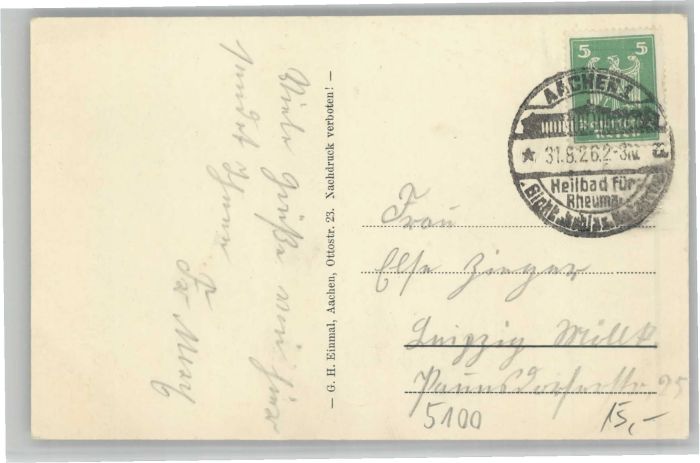 Viele Grüße von hier
sendet Ihnen
Fr
— G. H. Einmal, Aachen, Ottostr. 23. Nachdruck verboten! —
5 5
AACHEN 1
31.8.26.2-3N.
Heilbad für
Rheuma
Gicht
Frau
Else Zieger
Leipzig
Paunsdorferstr 25
5100
15,-